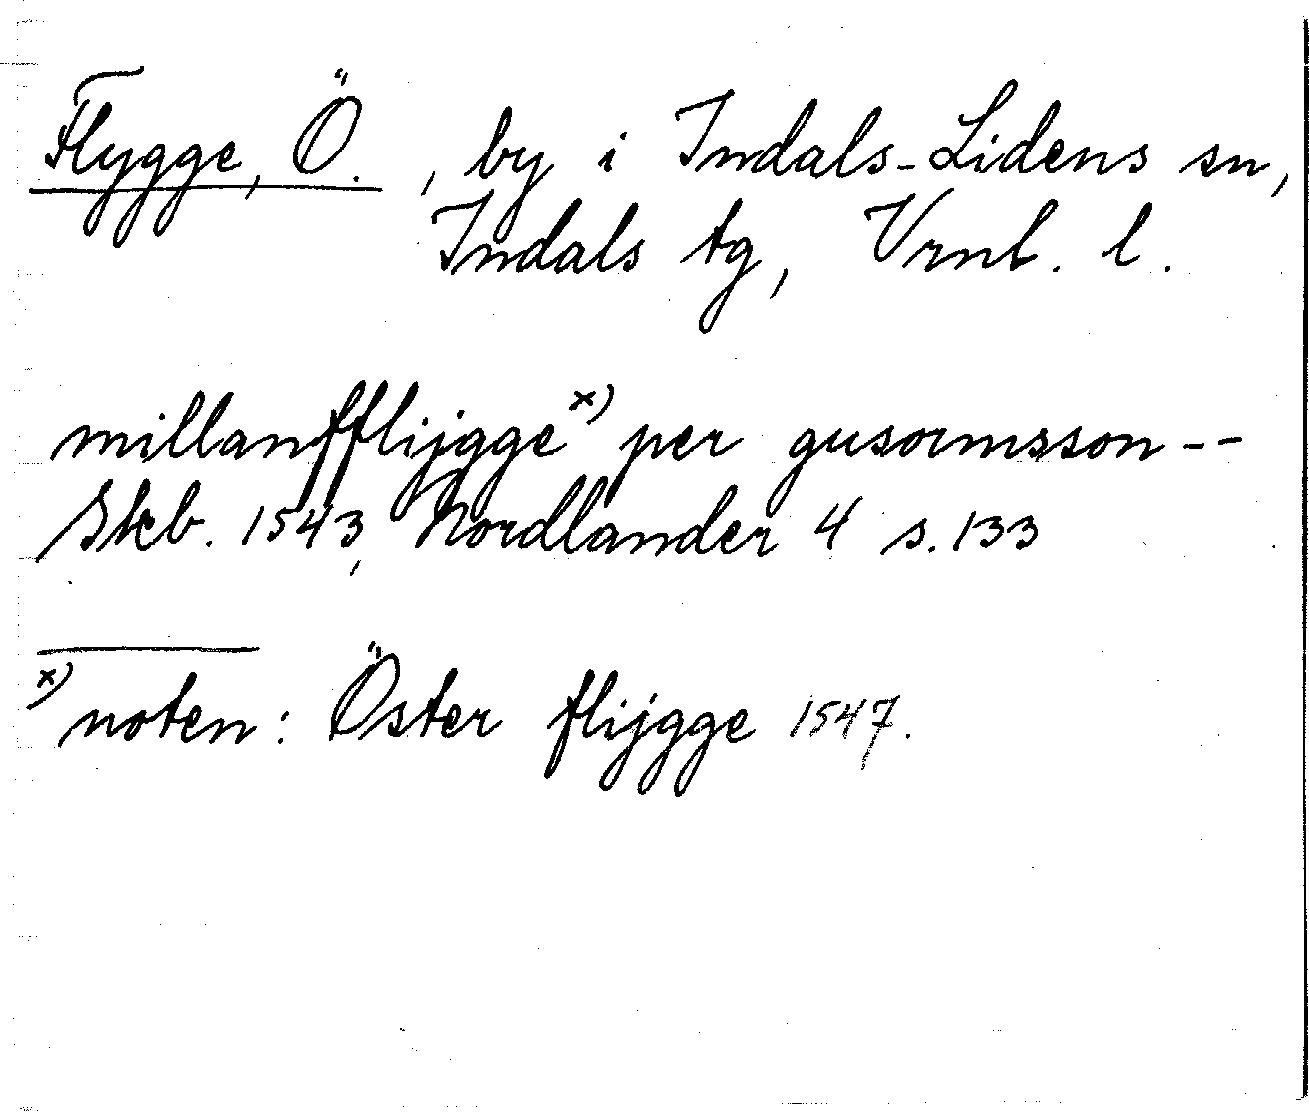 Flygge, Ö. , by i Indals-Lidens sn,
Indals tg, Vrnl. l.
millanfflijgge x) per gusormsson --
Skb. 1543, Nordlander 4 s. 133
x) noten: Öster flijgge 1547.